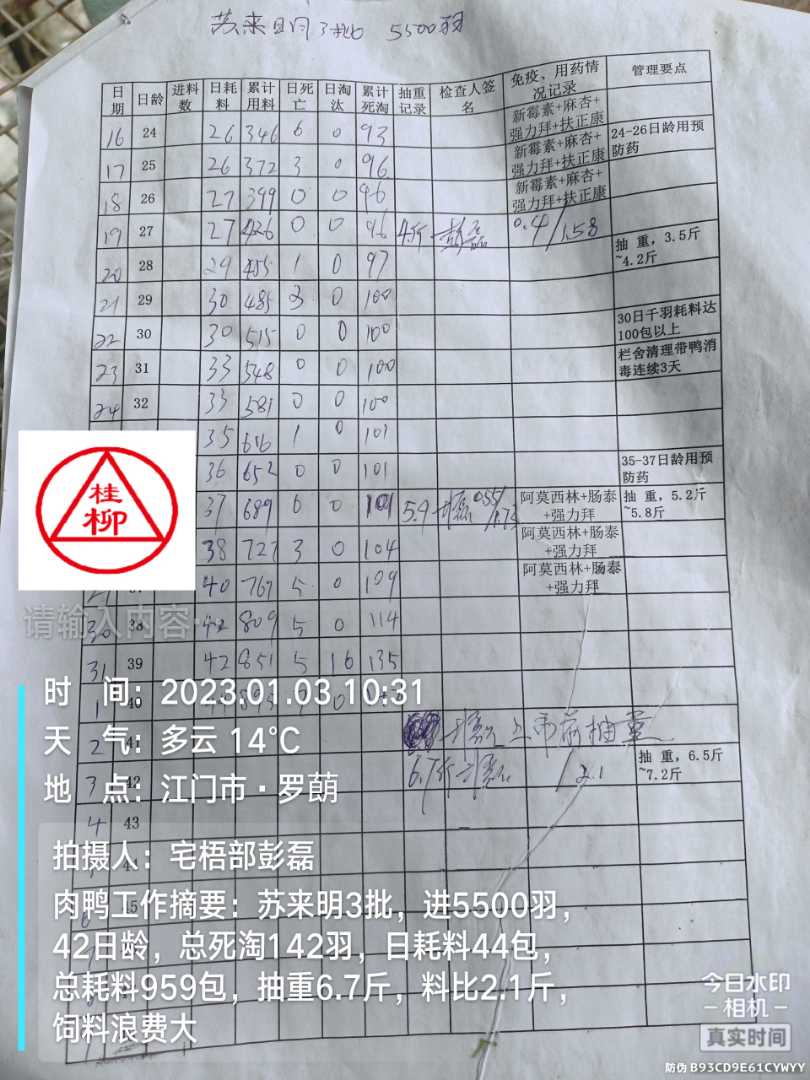 苏来明3批 5500羽
日期 日龄 进料数 日耗料 累计用料 日死亡 日淘汰 累计死淘 抽重记录 检查人签名 免疫、用药情况记录 管理要点
16 24 26 346 6 0 93 新霉素+麻杏+强力拜+扶正康 24-26日龄用预防药
17 25 26 372 3 0 96 新霉素+麻杏+强力拜+扶正康
18 26 27 399 0 0 96 新霉素+麻杏+强力拜+扶正康
19 27 27 426 0 0 96 4斤 彭磊 0.4/1.58 抽重，3.5斤~4.2斤
20 28 29 455 1 0 97
21 29 30 485 3 0 100
22 30 30 515 0 0 100 30日千羽耗料达100包以上
23 31 33 548 0 0 100 栏舍清理带鸭消毒连续3天
24 32 33 581 0 0 100
35 616 1 0 101
36 652 0 0 101 35-37日龄用预防药
37 689 0 0 101 5.9 彭磊 0.55/1.73 阿莫西林+肠泰+强力拜 抽重，5.2斤~5.8斤
38 727 3 0 104 阿莫西林+肠泰+强力拜
40 767 5 0 109 阿莫西林+肠泰+强力拜
请输入内容
30 38 42 809 5 0 114
31 39 42 851 5 16 135
1 40
2 41 彭磊上市前抽重
3 42 6.7斤 彭磊 2.1 抽重，6.5斤~7.2斤
4 43
桂柳
时 间：2023.01.03 10:31
天 气：多云 14℃
地 点：江门市·罗萌
拍摄人：宅梧部彭磊
肉鸭工作摘要：苏来明3批，进5500羽，
42日龄，总死淘142羽，日耗料44包，
总耗料959包，抽重6.7斤，料比2.1斤，
饲料浪费大
今日水印
-相机-
真实时间
防伪 B93CD9E61CYWYY